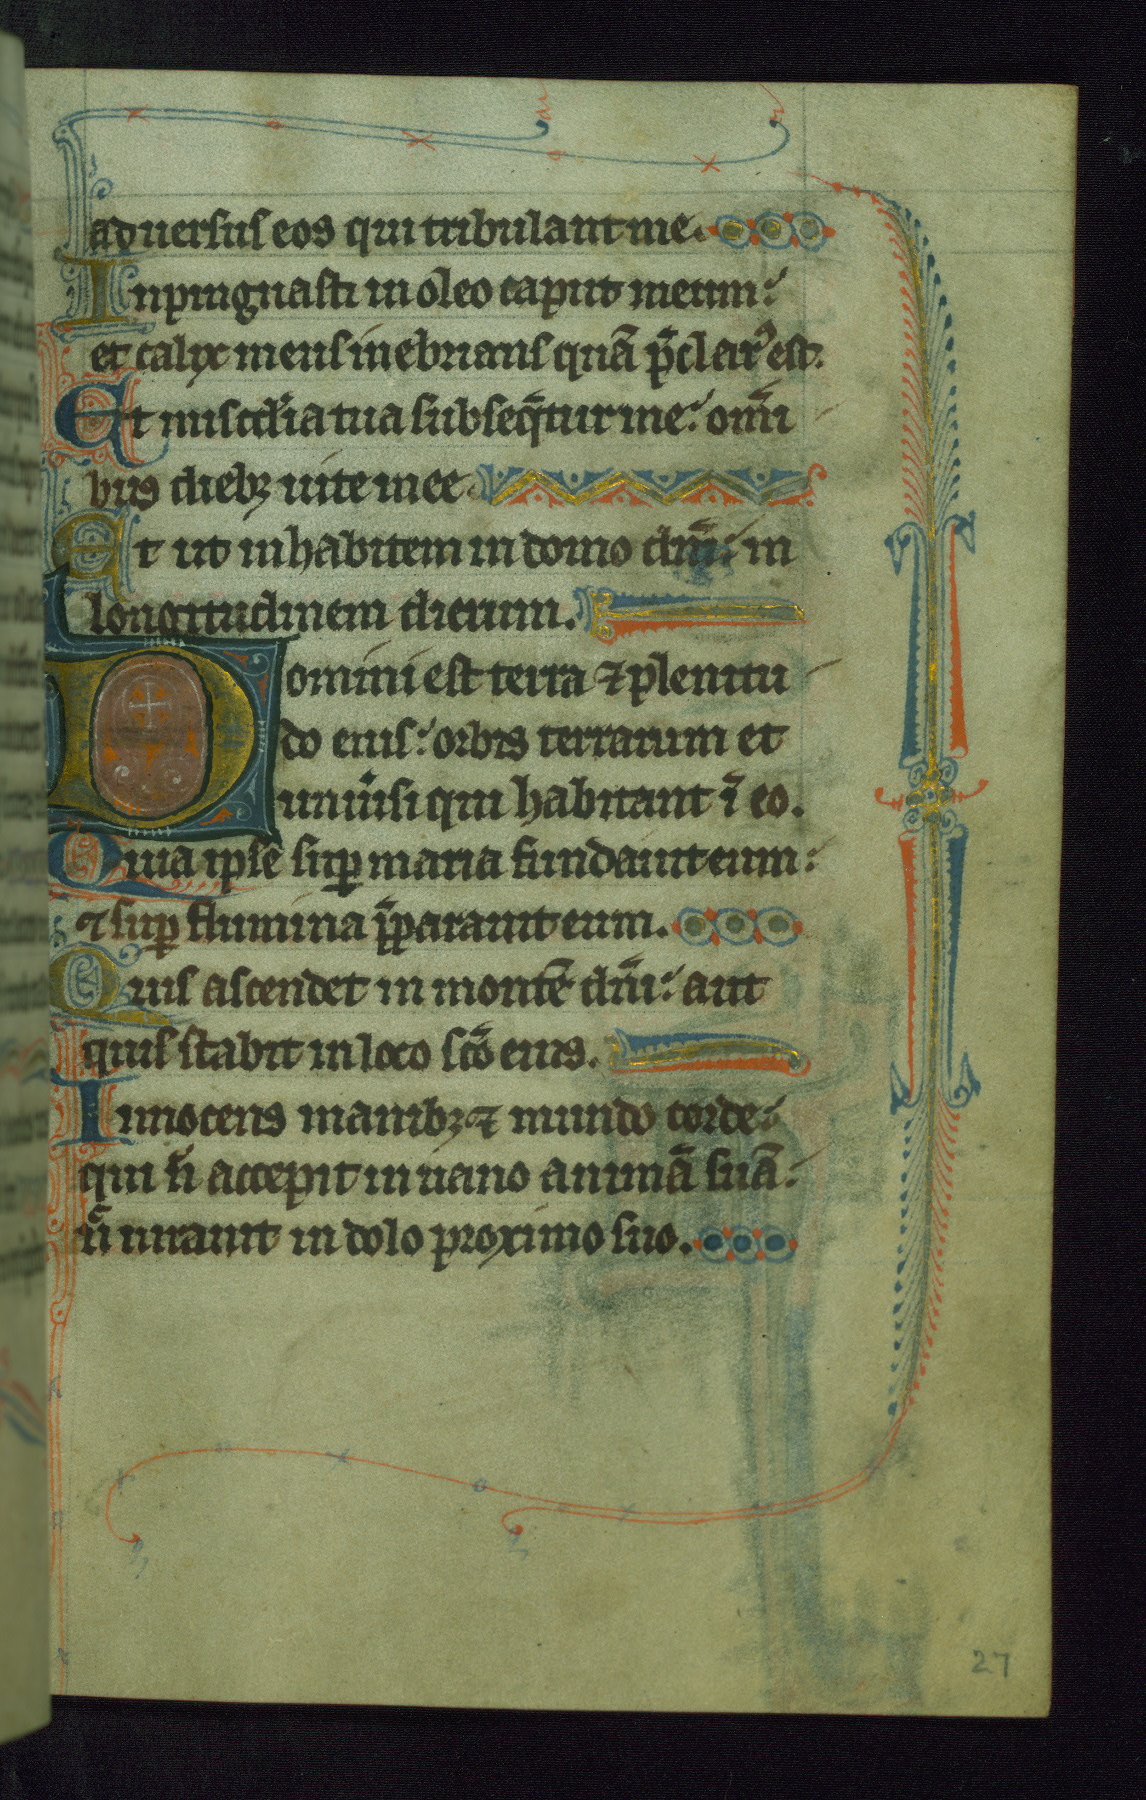 aduersus eos qui tribulant me.
Inpinguasti in oleo caput meum:
et calyx meus inebrians quā p̄clarꝰ est.
Et misc̄dia tua subseq̄tur me: omī
bus diebꝫ uite mee.
Et ut inhabitem in domo dn̄i: in
longitudinem dierum.
Domini est terra ⁊ plenitu
do eius: orbis terrarum et
uniūsi qui habitant ī eo.
Quia ipse suꝑ maria fundauit eum:
⁊ suꝑ flumina p̄parauit eum.
Quis ascendet in montē dn̄i: aut
quis stabit in loco sc̄o eius.
Innocens manibꝫ ⁊ mundo corde:
qui n̄ accepit in uano animā suā:
n̄ iurauit in dolo proximo suo.
27